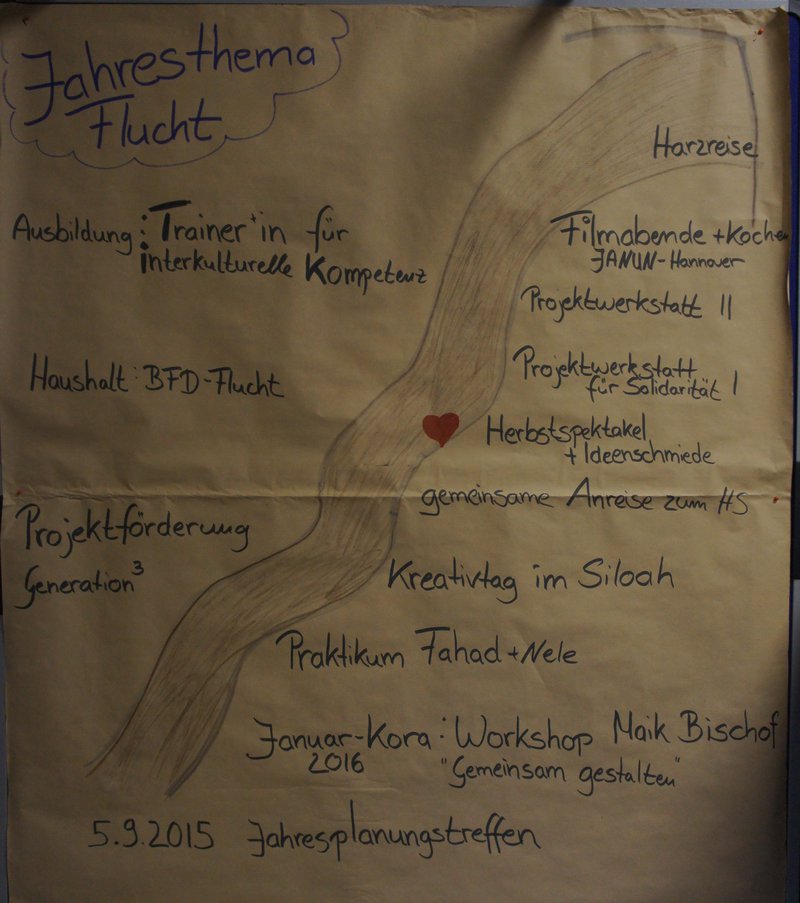 Jahresthema
Flucht
Harzreise
Ausbildung: Trainer*in für
interkulturelle Kompetenz
Filmabende + Kochen
JANUN-Hannover
Projektwerkstatt II
Haushalt: BFD-Flucht
Projektwerkstatt
für Solidarität I
Herbstspektakel
+ Ideenschmiede
gemeinsame Anreise zum HS
Projektförderung
Generation³
Kreativtag im Siloah
Praktikum Fahad + Nele
Januar-Kora: Workshop Maik Bischof
2016 "Gemeinsam gestalten"
5.9.2015 Jahresplanungstreffen